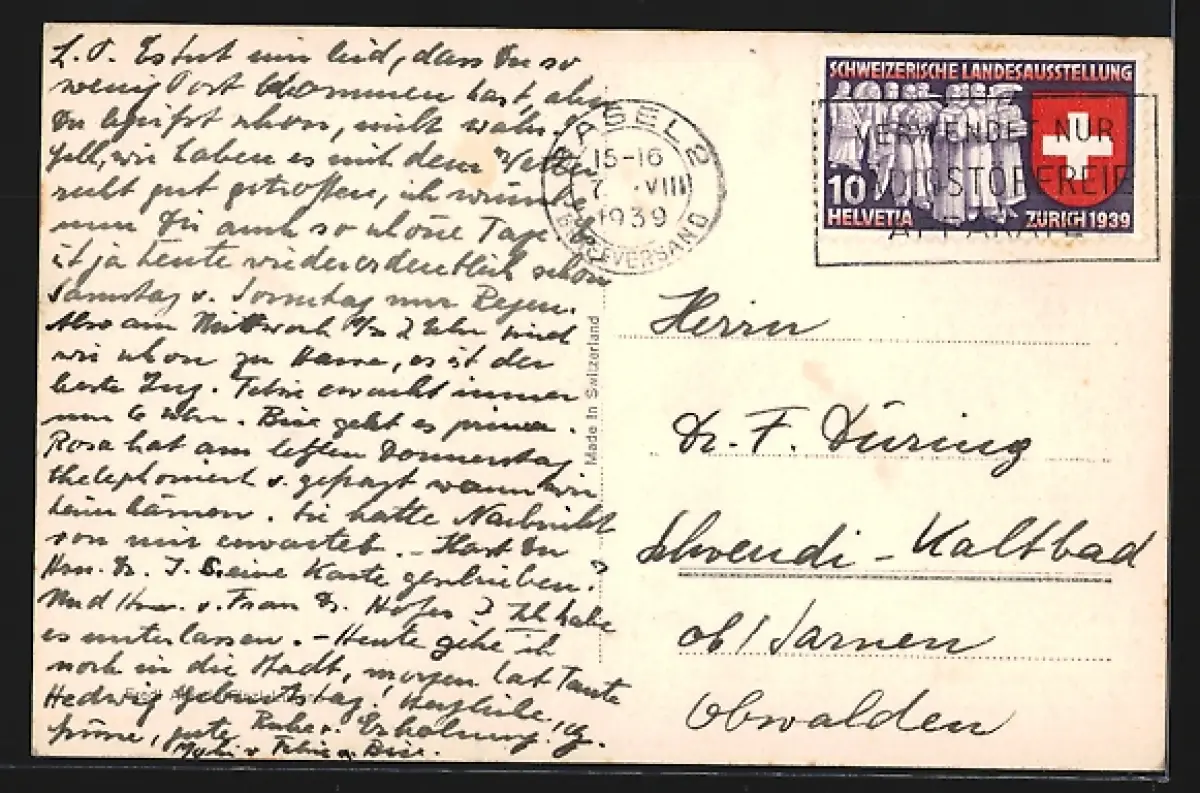 L. P. Es tut mir leid, dass Du so
wenig Post bekommen hast, aber
Du begreifst schon, nicht wahr.
Gell, wir haben es mit dem Wetter
recht gut getroffen, ich wünsche
nun Dir auch so schöne Tage. Es
ist ja heute wieder ordentlich schön
Samstag u. Sonntag nur Regen.
Also am Mittwoch 2 Uhr sind
wir schon zu Hause, es ist der
beste Zug. erwacht immer
um 6 Uhr. geht es prima.
Rosa hat am letzten Donnerstag
thelephoniert u. gefragt wann wir
heim kämen. Sie hatte Nachricht
von mir erwartet. - Hast Du
Hrn. Dr. J. S. eine Karte geschrieben?
Und Hrn. u. Frau Dr. Hofer? Ich habe
es unterlassen. - Heute gehe ich
noch in die Stadt, morgen hat Tante
Hedwig Geburtstag! Herzliche
Grüsse, gute Ruhe u. Erholung!
Made in Switzerland
BASEL 2
15-16
7. VIII
1939
BRIEFVERSAND
SCHWEIZERISCHE LANDESAUSSTELLUNG
10
HELVETIA
ZÜRICH 1939
VERWENDET NUR
RADIOSTÖRFREIE
APPARATE
Herrn
Dr. F. Düring
Schwendi-Kaltbad
ob/Sarnen
Obwalden